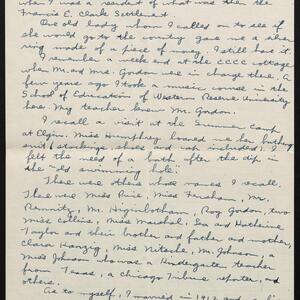 when I was a resident of what was then the
Francis E. Clark Settlement.
An old lady whom I called on to see if
she would go to the country gave me a
ring made of a piece of money. I still have it.
I remember a week end at the CCCC cottage
when Mr. and Mrs. Gordon were in charge there. A
few years ago I took a music course in the
School of Education of Western Reserve University
here. My teacher knew Mr. Gordon.
I recall a visit at the Summer Camp
at Elgin. Miss Humphrey loaned me her bathing
suit (stockings, shoes and cap included). I
felt the need of a bath after the dip in
the old swimming hole.
There were others whose names I recall.
There were Miss Price, Miss Fursham, Mr.
Rammity, Mr. Higinbotham, Roy Gordon, two
Miss Collins, Miss Marshal, Ina and Katherine
Taylor and their brother and father and mother,
Clara Hanzig, Miss Nitsche, Mr. Johnson, a
Miss Johnson who was a Kindergarten teacher
from Texas, a Chicago Tribune reporter, and
others.
As to myself, I married in 1912 and